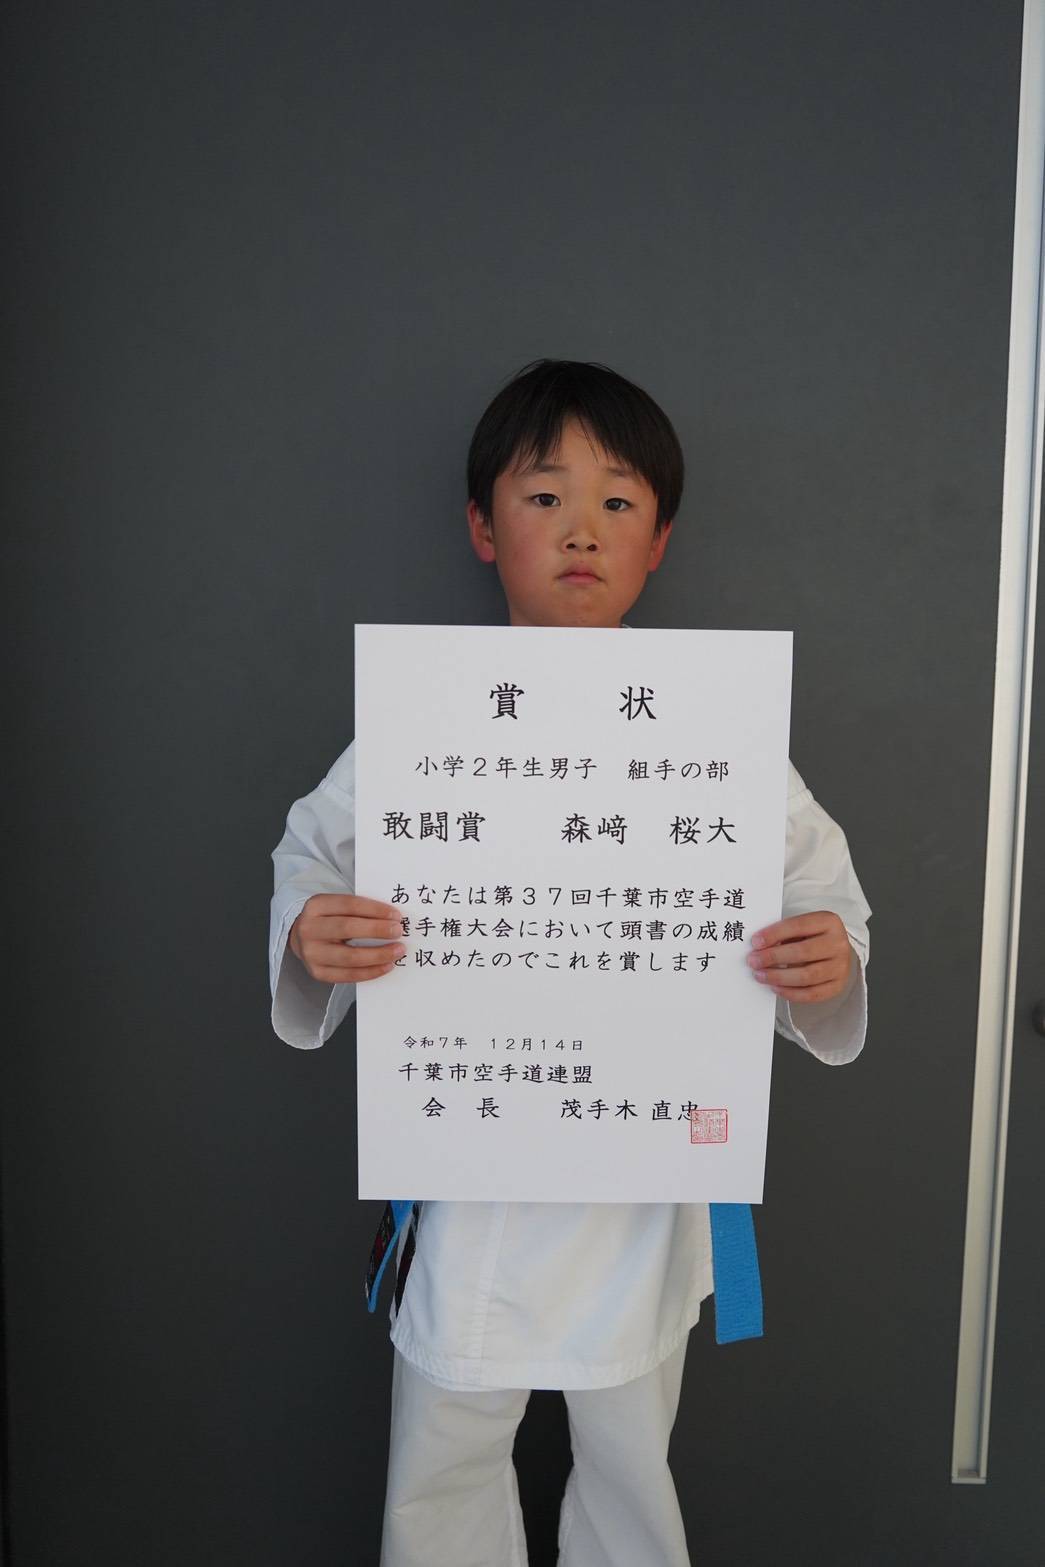 賞 状
小学2年生男子 組手の部
敢闘賞 森﨑 桜大
あなたは第37回千葉市空手道
選手権大会において頭書の成績
を収めたのでこれを賞します
令和7年 12月14日
千葉市空手道連盟
会 長 茂手木 直忠